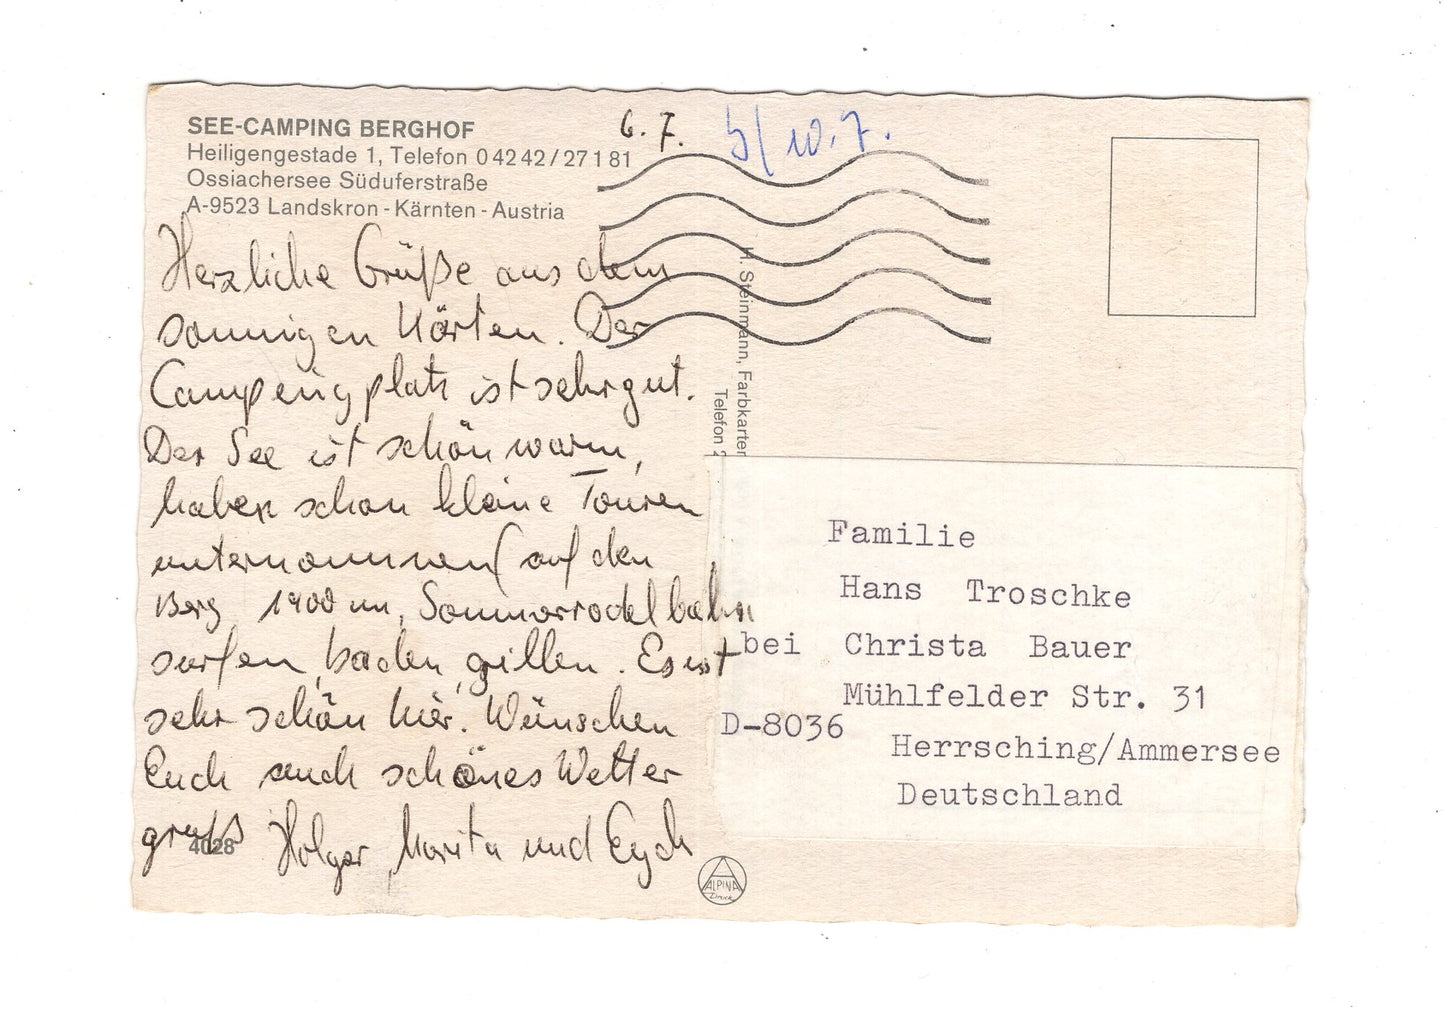 SEE-CAMPING BERGHOF
Heiligengestade 1, Telefon 0 42 42 / 27 1 81
Ossiachersee Süduferstraße
A-9523 Landskron - Kärnten - Austria
6. 7.
10. 7.
Herzliche Grüße aus dem
sonnigen Kärten. Der
Campeingplatz ist sehr gut.
Der See ist schön warm,
haben schon kleine Touren
unternommen (auf den
Berg 1900 m, Sommerrodelbahn
surfen, baden, grillen. Es ist
sehr schön hier. Wünschen
Euch auch schönes Wetter
gruß Holger, Marita und
4028
H. Steinmann, Farbkarten
Telefon
Familie
Hans Troschke
bei Christa Bauer
Mühlfelder Str. 31
D-8036
Herrsching/Ammersee
Deutschland
ALPINA
Druck